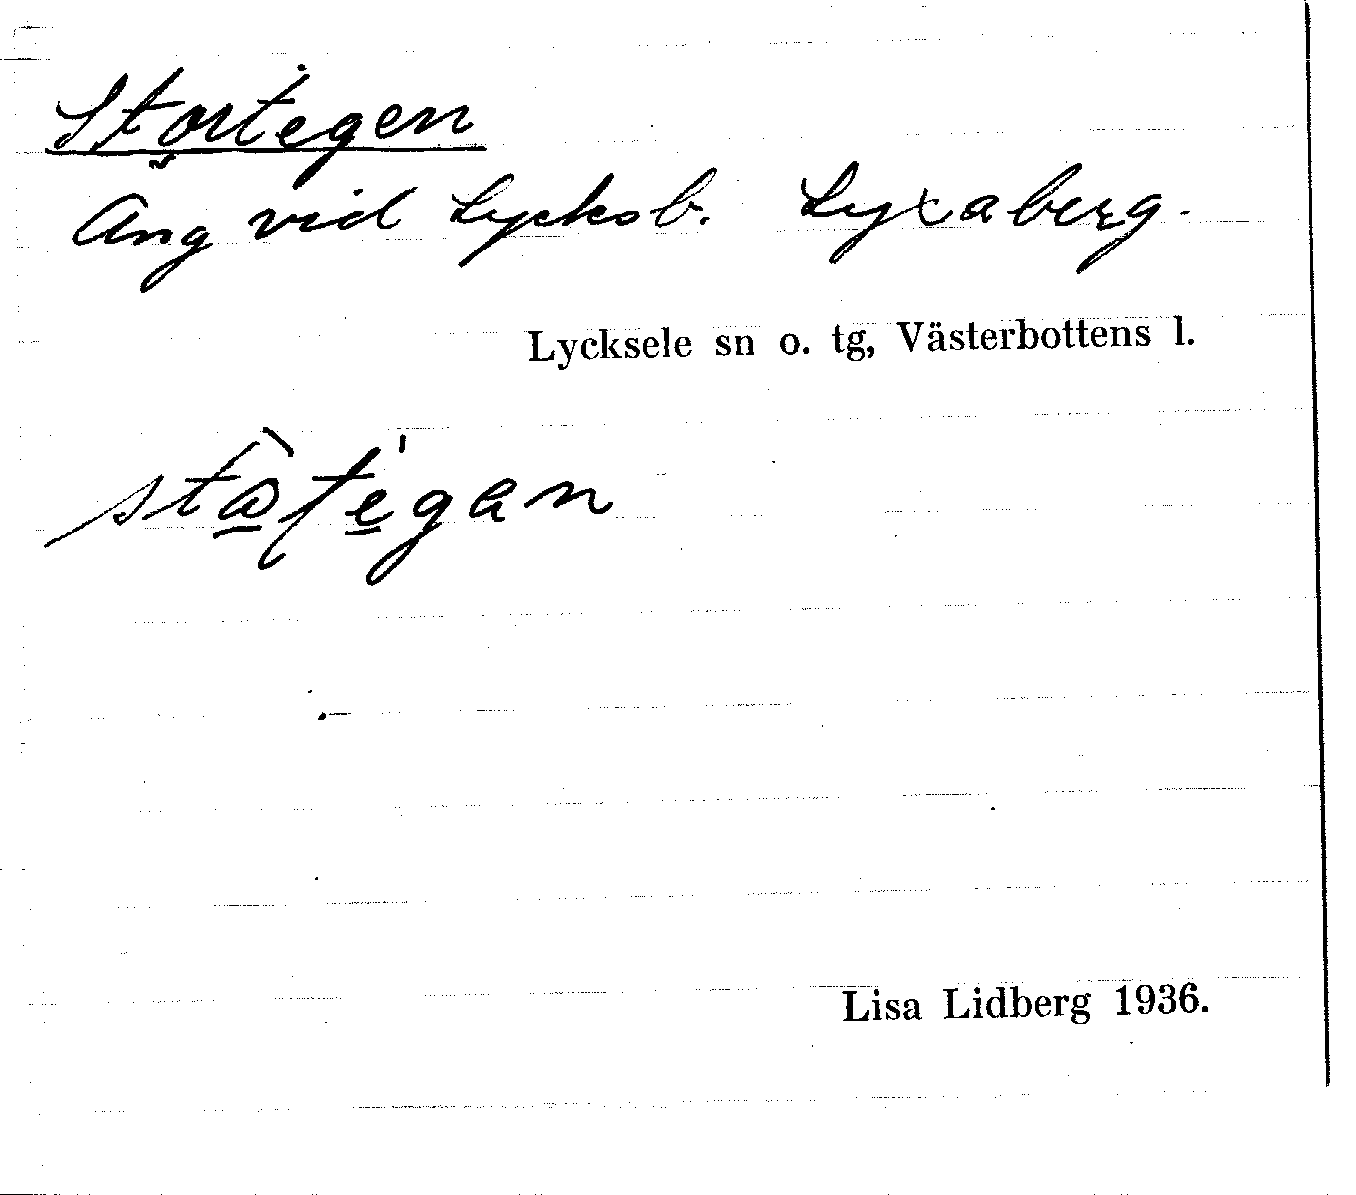 Stortegen
Äng vid Lycksb. Lyxaberg.
Lycksele sn o. tg, Västerbottens l.
Lisa Lidberg 1936.